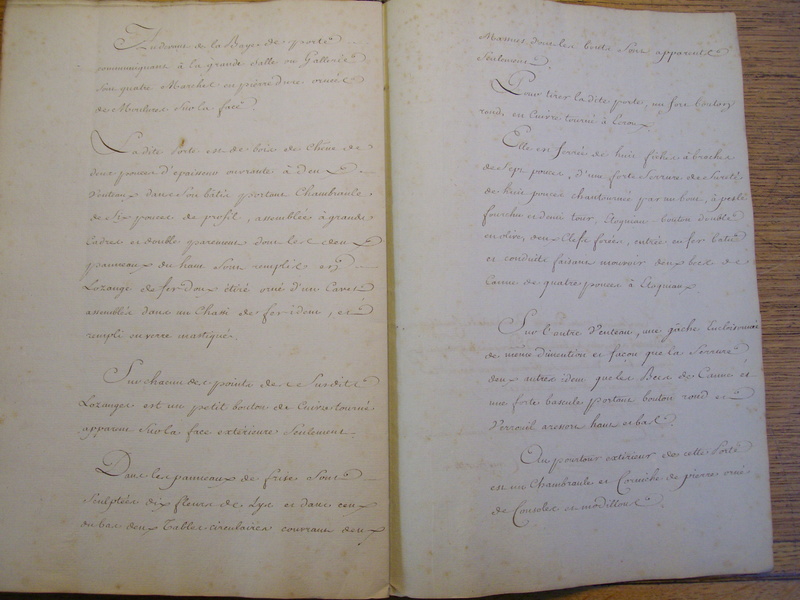 Au devant de la Baye de porte
communiquant à la grande Salle ou Gallerie
Son quatre Marches en pierre dure ornées
de Moulures Sur la face
La dite Porte est de bois de Chêne de
deux pouces d'epaisseur ouvrante à deux
Venteaux dans Son bâtis portant Chambranle
de Six pouces de profil, assemblés à grands
Cadres et double parement dont les deux
panneaux du haut Sont remplis en
Lozange de fer doux étiré orné d'un Cavet
assemblés dans un Chassi de fer idem, et
rempli en verre mastiqué.
Sur chacun des points de ce Susdit
Lozanges est un petit bouton de Cuivre tourné
apparent Sur la face extérieure Seulement.
Dans les panneaux de frise Sont
Sculptées dix fleurs de Lys et dans ceux
du bas deux Tables circulaires couvrant deux
Masses dont les bouts Sont apparents
Seulement
Pour tirer la dite porte, un fort bouton
rond, en Cuivre tourné à Ecrou.
Elle est ferrée de huit fiches à broches
de Sept pouces, d'une forte Serrure de Sureté
de huit pouces chantournée par un bout, à pesle
fourchu et demi tour, Etoquiau bouton double
en olive, deux Clefs forées, entrée en fer
et conduite faisant mouvoir deux becs de
Canne de quatre pouces à Etoquiaux.
Sur l'autre Venteau, une gâche Encloisonnée
de même dimention et façon que la Serrure
deux autres idem que les Becs de Cannes et
une forte bascule portant bouton rond et
Verrouil à ressort haut et bas.
Au pourtour extérieur de cette Porte
est un Chambranle et Corniche de pierre orné
de Consoles et modillons.